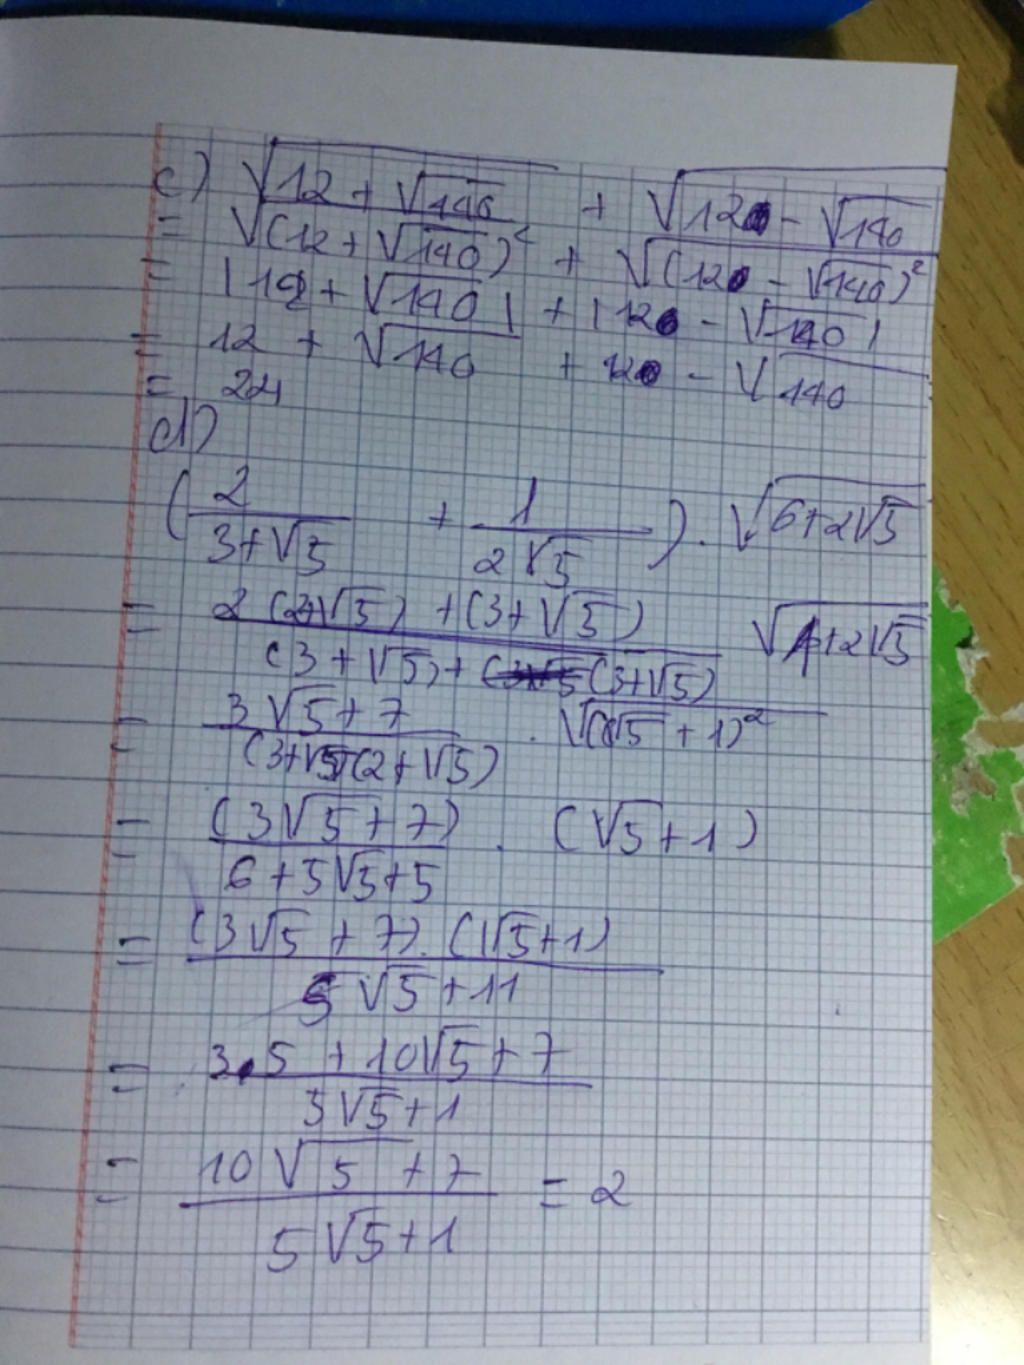 c) √(12 + √140) + √(120 - √140)
= √(12 + √140)² + √(120 - √140)²
= |12 + √140| + |120 - √140|
= 12 + √140 + 120 - √140
= 24
d)
(2/(3+√5) + 1/(2√5)) . √(6+2√5)
= (2(2+√5) + (3+√5))/((3+√5)+(3+√5)) √(1+2√5)
= (3√5+7)/((3+√5)(2+√5)) . √(√5+1)²
= (3√5+7)/(6+5√5+5) . (√5+1)
= (3√5+7).(√5+1)/(5√5+11)
= (3.5+10√5+7)/(5√5+1)
= (10√5+7)/(5√5+1) = 2